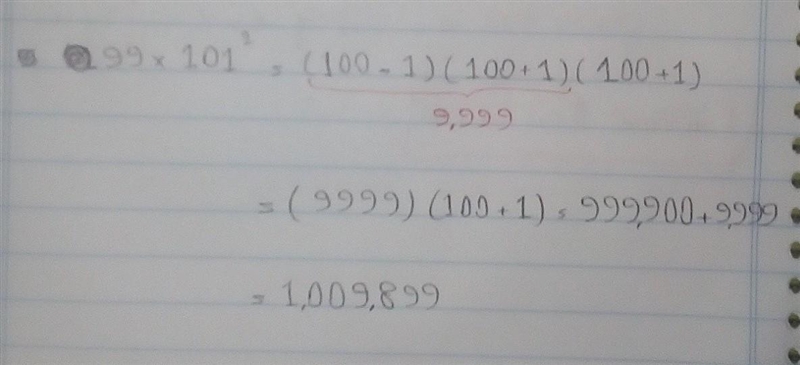 99 × 101² = (100 - 1)(100 + 1)(100 + 1)
9,999
= (9999)(100 + 1) = 999,900 + 9,999
= 1,009,899